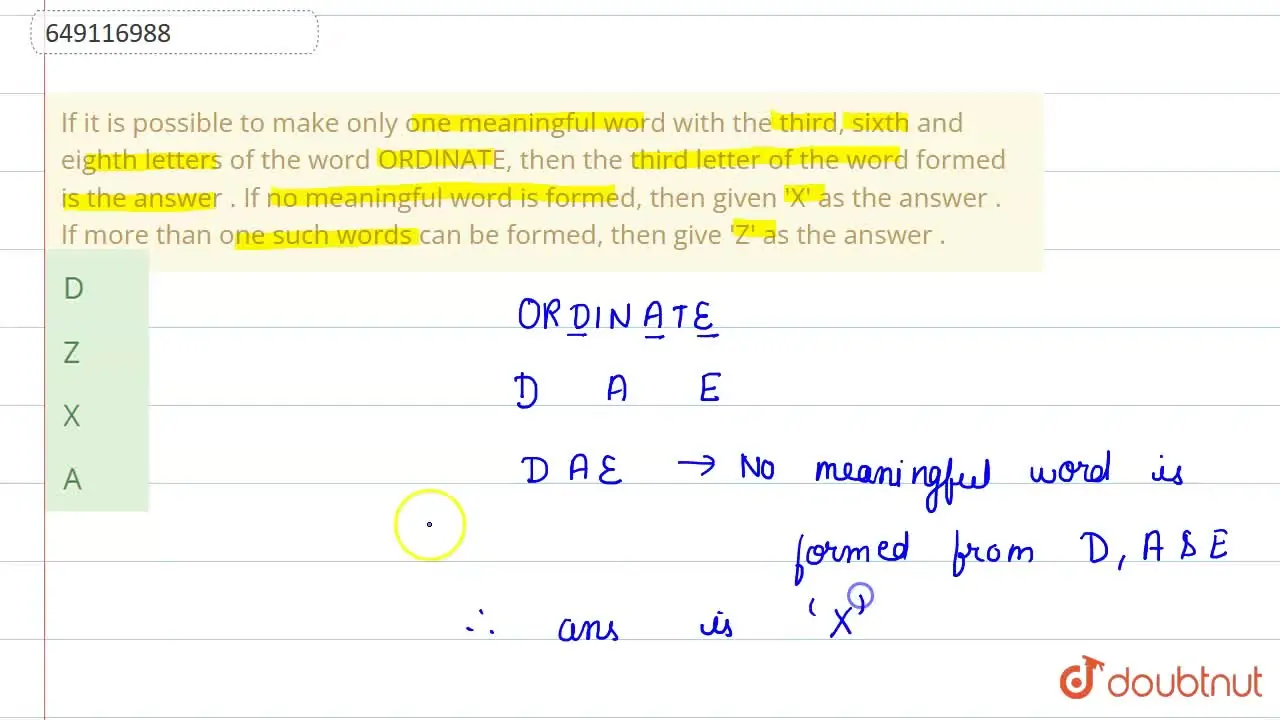 649116988
If it is possible to make only one meaningful word with the third, sixth and
eighth letters of the word ORDINATE, then the third letter of the word formed
is the answer . If no meaningful word is formed, then given 'X' as the answer .
If more than one such words can be formed, then give 'Z' as the answer .
D
Z
X
A
ORDINATE
D A E
DAE → No meaningful word is
formed from D, A & E
∴ ans is 'X'
doubtnut